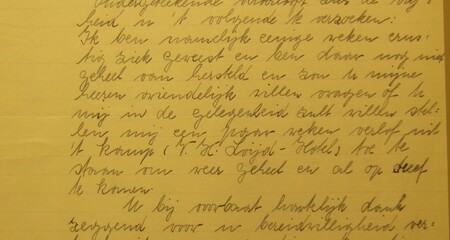 Ondergeteekende veroorlooft zich de vrij-
heid u 't volgende te verzoeken:
Ik ben namelijk eenige weken erns-
tig ziek geweest en ben daar nog niet
geheel van hersteld en zou u mijne
heeren vriendelijk willen vragen of u
mij in de gelegenheid zult willen stel-
len, mij een paar weken verlof uit
't kamp (V. H. Loijd-Hotel) toe te
staan om weer geheel en al op dreef
te komen.
U bij voorbaat hartelijk dank
zeggend voor u bereidwilligheid ver-